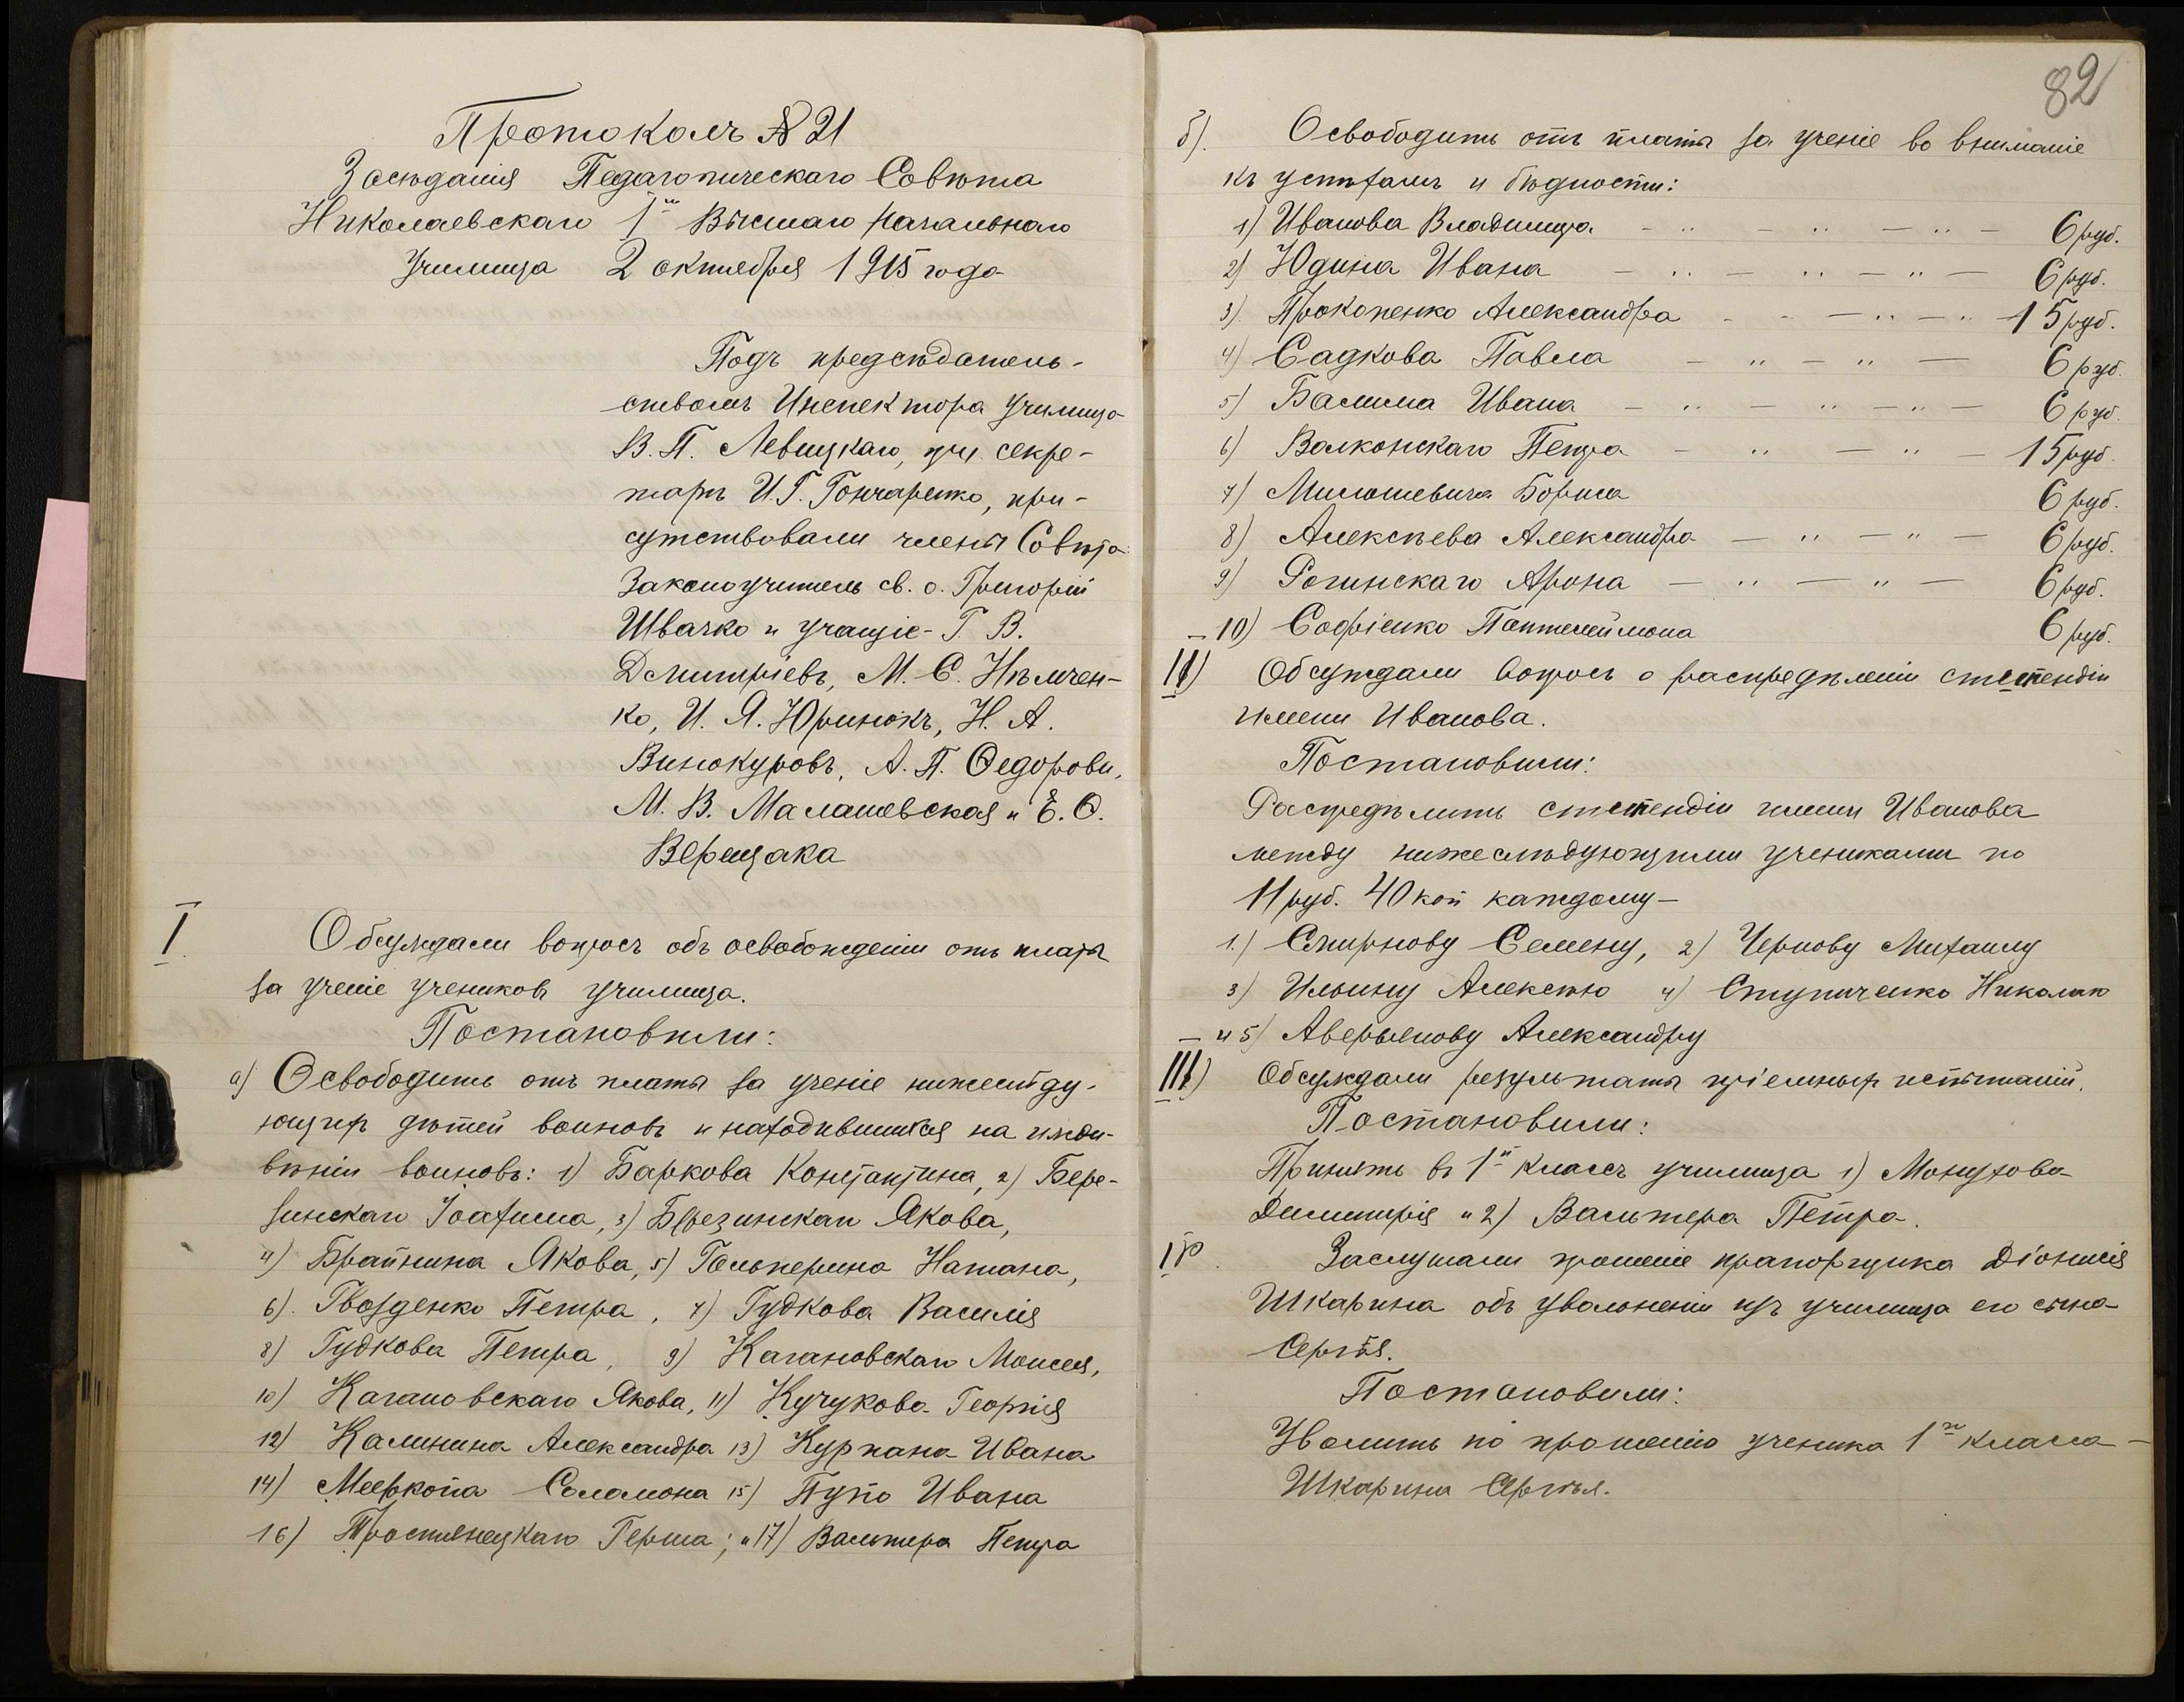 Протоколъ № 21
Засѣданія Педагогическаго Совѣта
Николаевскаго 1го Высшаго начальнаго
Училища 2 октября 1915 года
Подъ предсѣдатель-
ствомъ Инспектора Училища
В. П. Левицкаго, при секре-
тарѣ И. Г. Гончаренко, при-
сутствовали члены Совѣта:
Законоучитель св. о. Григорій
Швачко и учащіе - Г. В.
Дмитріевъ, М. С. Нѣмчен-
ко, И. Я. Юринокъ, Н. А.
Винокуровъ, А. П. Ѳедорови,
М. В. Малашевская и Е. Ѳ.
Верещака
I. Обсуждали вопросъ объ освобожденіи отъ платы
за ученіе учениковъ училища.
Постановили:
а) Освободить отъ платы за ученіе нижеслѣду-
ющихъ дѣтей воиновъ и находившихся на ижди-
веніи воиновъ: 1) Баркова Константина, 2) Бере-
зинскаго Іоахима, 3) Березинскаго Якова,
4) Брайнина Якова, 5) Гольперина Натана,
6). Гвозденко Петра, 7) Гудкова Василія
8) Гудкова Петра, 9) Кагановскаго Моисея,
10) Кагановскаго Якова, 11) Кучукова Георгія
12) Калинина Александра 13) Курпана Ивана
14) Мееркопа Соломона 15) Пупо Ивана
16) Тростянецкаго Герша; и 17) Вальтера Петра
82
б). Освободить отъ платы за ученіе во вниманіе
къ успѣхамъ и бѣдности:
1) Иванова Владимира - 〃 - 〃 - 〃 - 6 руб.
2) Юдина Ивана - 〃 - 〃 - 〃 - 6 руб.
3) Прокопенко Александра - - - 〃 - 〃 15 руб.
4) Садкова Павла - 〃 - 〃 - 6 руб.
5) Балима Ивана - 〃 - 〃 - 〃 - 6 руб.
6) Волконскаго Петра - 〃 - 〃 - 15 руб.
7) Милошевича Бориса 6 руб.
8) Алексѣева Александра - 〃 - 〃 - 6 руб.
9) Рогинскаго Арона - 〃 - 〃 - 6 руб.
- 10) Софіенко Пантелеймона 6 руб.
II) Обсуждали вопросъ о распредѣленіи стипендіи
имени Иванова.
Постановили:
Распредѣлить стипендіи имени Иванова
между нижеслѣдующими учениками по
11 руб. 40 коп каждому -
1.) Смирнову Семену, 2) Чернову Михаилу
3) Ильину Алексѣю 4) Ступиченко Николаю
- и 5) Аверьянову Александру
III) Обсуждали результаты пріемныхъ испытаній.
Постановили:
Принять въ 1й классъ училища 1) Монухова
Димитрія и 2) Вальтера Петра.
IV. Заслушали прошеніе прапорщика Діонисія
Шкарина объ увольненіи изъ училища его сына
Сергѣя.
Постановили:
Уволить по прошенію ученика 1го класса -
Шкарина Сергѣя.